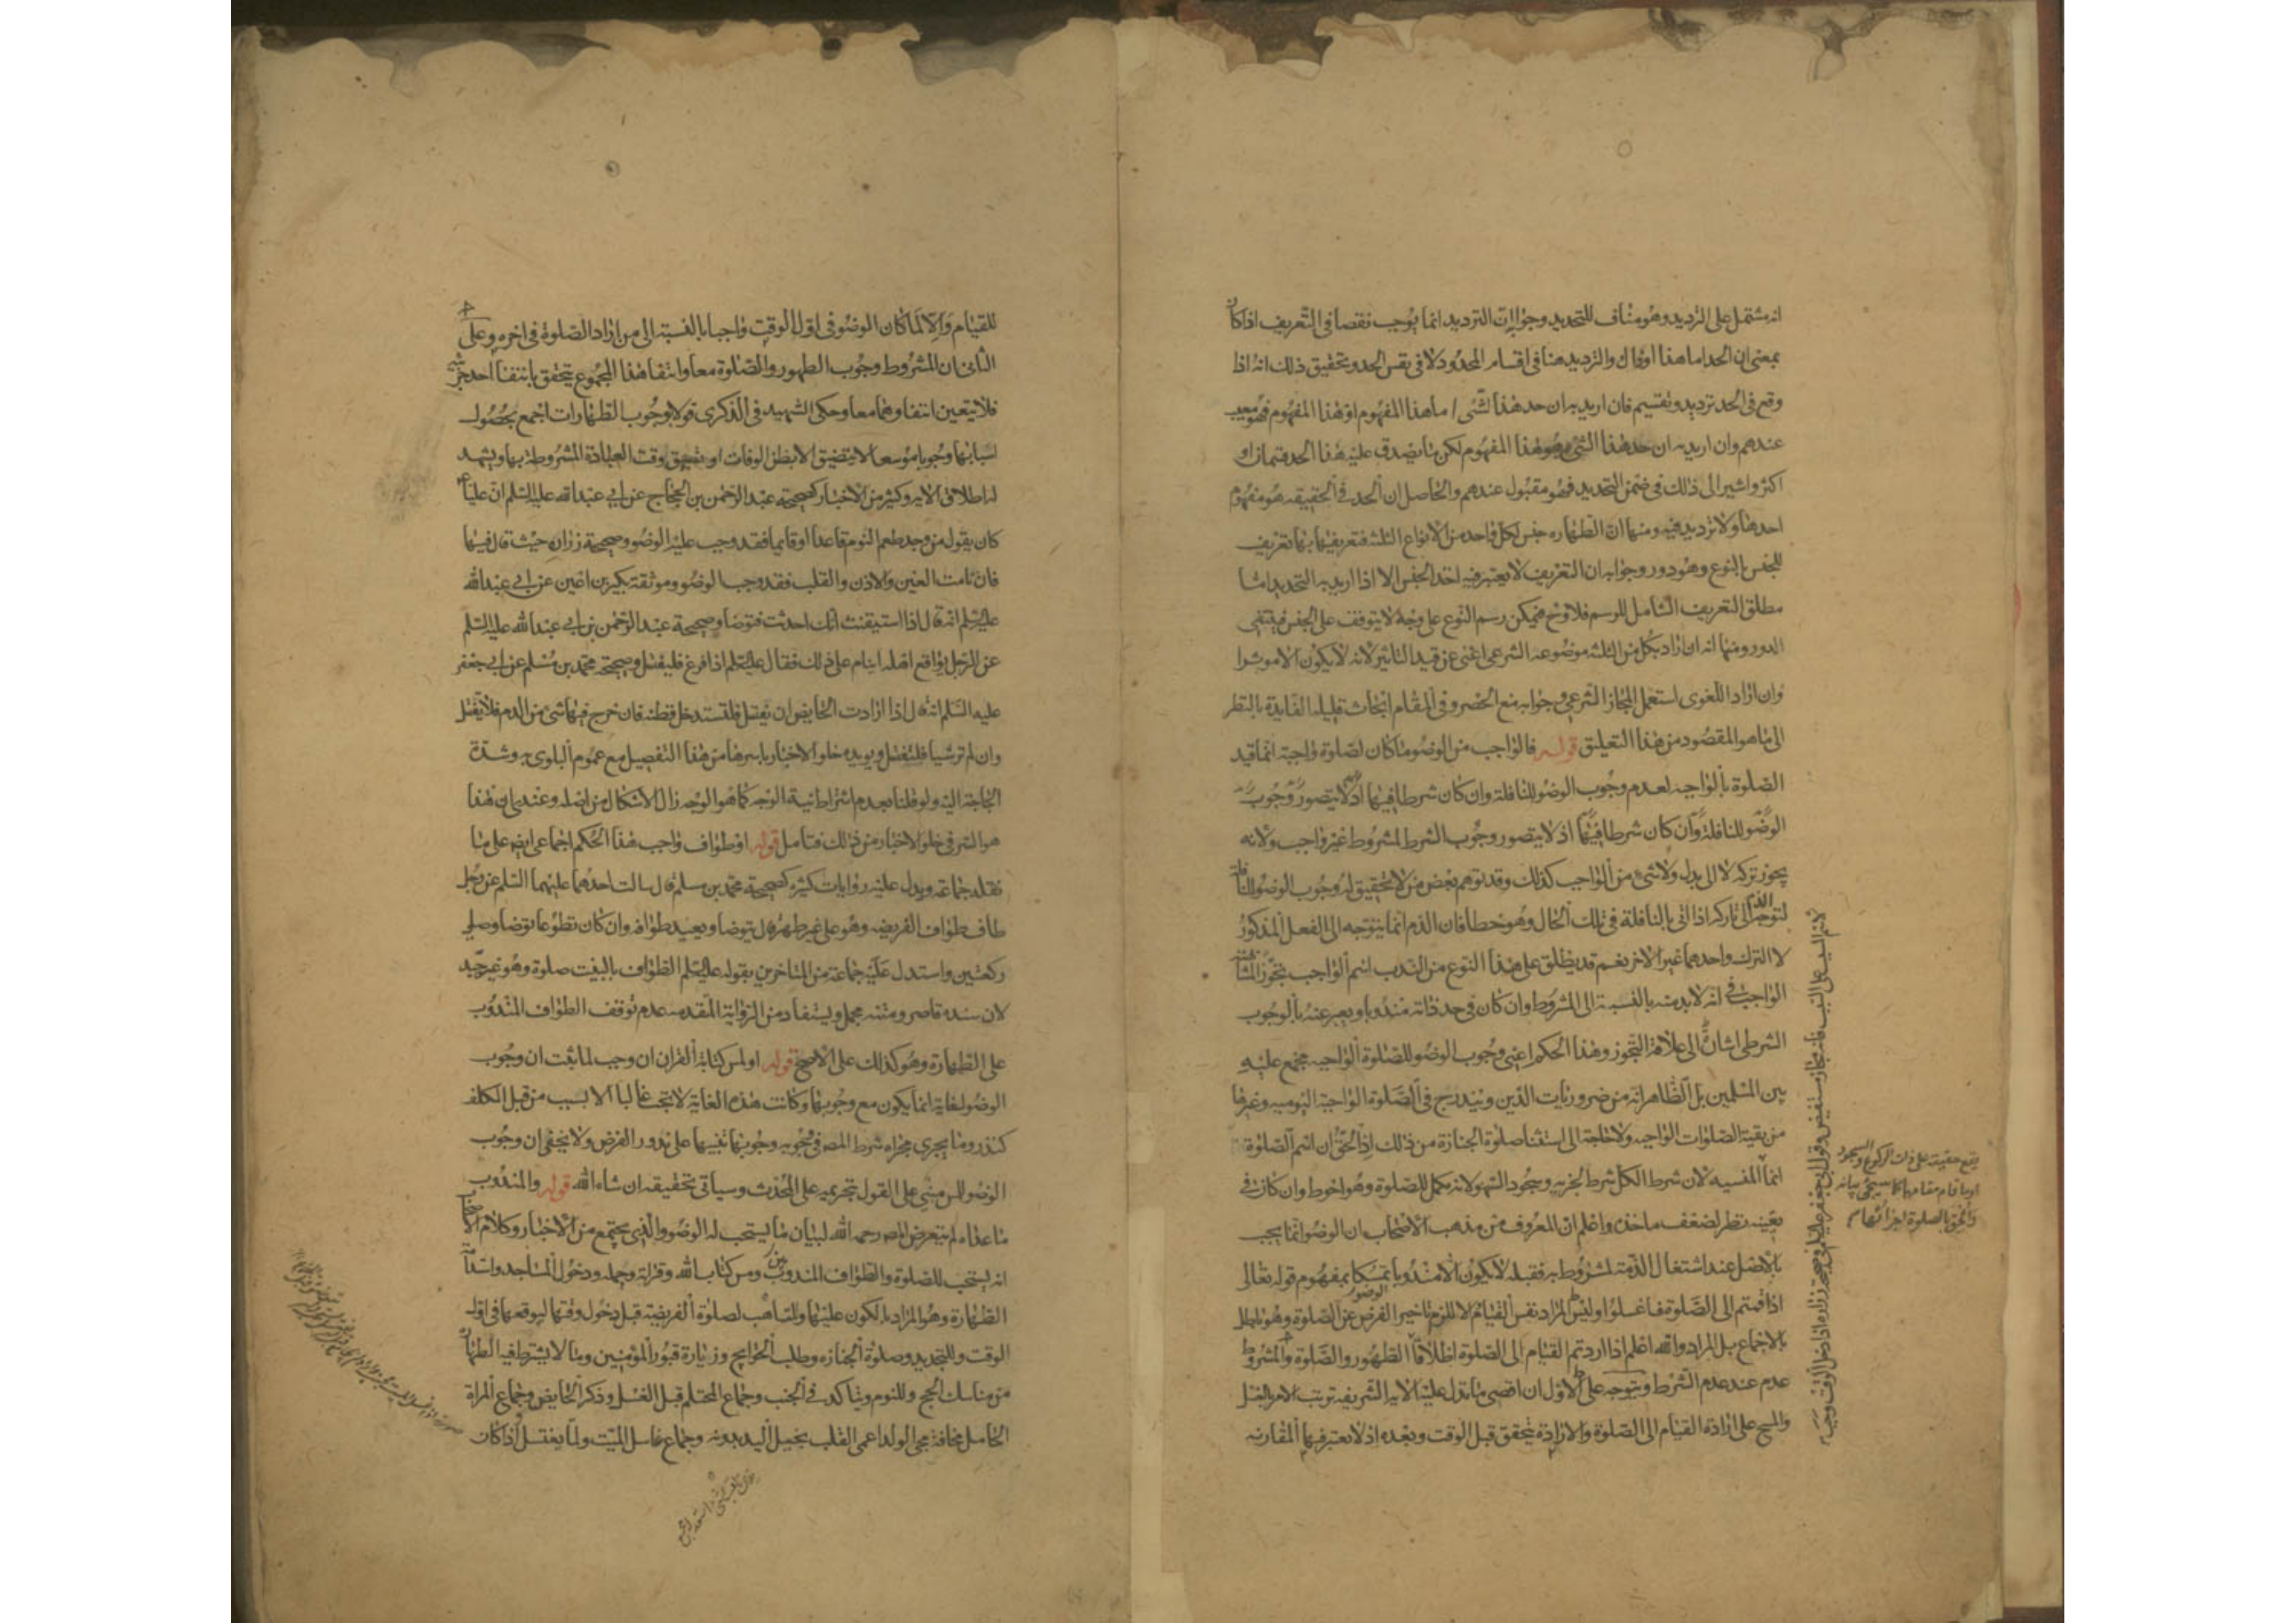 انه مشتمل على الترديد وهو مناف للتحديد وجوابه ان الترديد انما يوجب نقصا فى التعريف اذا كان
بمعنى ان الحد اما هذا او ذاك والترديد هنا فى اقسام المحدود لا فى نفس الحد وتحقيق ذلك انه اذا
وقع فى الحد ترديد وتقسيم فان اريد به ان حد هذا الشئ اما هذا المفهوم او هذا المفهوم فهو معيب
عندهم وان اريد به ان حد هذا الشئ هو هذا المفهوم لكن ما يصدق عليه هذا الحد قسمان او
اكثر واشير الى ذلك فى ضمن التحديد فهو مقبول عندهم والحاصل ان الحد فى الحقيقه هو مفهوم
احدهما ولا ترديد فيه ومنها ان الطهاره جنس لكل واحد من الانواع الثلثه فتعريفها بها تعريف
للجنس بالنوع وهو دور وجوابه ان التعريف لا يعتبر فيه اخذ الجنس الا اذا اريد به التحديد اما
مطلق التعريف الشامل للرسم فلا وح فيمكن رسم النوع على وجه لا يتوقف على الجنس فينتفى
الدور ومنها انه ان اراد بكل من الثلثه موضوعه الشرعى اغنى عن قيد التاثير لانه لا يكون الا موثرا
وان اراد اللغوى استعمل المجاز الشرعى وجوابه منع الحصر وفى المقام ابحاث قليله الفايدة بالنظر
الى ما هو المقصود من هذا التعليق قوله فالواجب من الوضوء ما كان لصلوة واجبة انما قيد
الصلوة بالواجبه لعدم وجوب الوضو للنافلة وان كان شرطا فيها اذ لا يتصور وجوب
الوضو للنافلة وان كان شرطا فيها اذ لا يتصور وجوب الشرط لمشروط غير واجب ولانه
يجوز تركه لا الى بدل ولا شئ من الواجب كذلك وقد توهم بعض من لا تحقيق له وجوب الوضو للنافلة
لتوجه الذم الى تاركه اذا اتى بالنافلة فى تلك الحال وهو خطا فان الذم انما يتوجه الى الفعل المذكور
لا الترك واحدهما غير الاخر نعم قد يطلق على هذا النوع من الندب اسم الواجب تجوزا لمشابهته
الواجب فى انه لا بد منه بالنسبة الى المشروط وان كان فى حد ذاته مندوبا ويعبر عنه بالوجوب
الشرطى اشارة الى علاقة التجوز وهذا الحكم اعنى وجوب الوضو للصلوة الواجبه مجمع عليه
بين المسلمين بل الظاهر انه من ضروريات الدين ويندرج فى الصلوة الواجبة اليوميه وغيرها
من بقية الصلوات الواجبه ولا حاجة الى استثنا صلوة الجنازة من ذلك اذ الحق ان اسم الصلوة
انما المنسيه لان شرط الكل شرط لجزيه وسجود السهو لانه مكمل للصلوة وهو احوط وان كان فى
تعينه نظر لضعف ماخذه واعلم ان المعروف من مذهب الاصحاب ان الوضو انما يجب
بالاصل عند اشتغال الذمة لمشروط به فقبله لا يكون الا مندوبا تمسكا بمفهوم قوله تعالى
اذا قمتم الى الصلوة فاغسلوا وليس المراد نفس القيام والا لزم تاخير الوضو عن الصلوة وهو باطل
بالاجماع بل المراد والله اعلم اذا اردتم القيام الى الصلوة اطلاقا الطهور والصلوة والمشروط
عدم عند عدم الشرط ويتوجه على الاول ان اقصى ما تدل عليه الايه الشريفه ترتب الامر بالغسل
والمسح على ارادة القيام الى الصلوة والارادة تتحقق قبل الوقت وبعده اذ لا يعتبر فيها المقارنه
يقع حقيقة على ذات الركوع والسجود
او ما قام مقامهما كما سيجئ بيانه
والحق بالصلوة اجزائها
للقيام والا لما كان الوضو فى اول الوقت واجبا بالنسبة الى من اراد الصلوة فى اخره وعلى
الثانى ان المشروط وجوب الطهور والصلوة معا وانتفا هذا المجموع يتحقق بانتفا احد جزئيه
فلا يتعين انتفاوهما معا وحكى الشهيد فى الذكرى قولا بوجوب الطهارات اجمع بحصول
اسبابها وجوبا موسعا لا يتضيق الا بظن الوفات او تضيق وقت العبادة المشروطة بها ويشهد
له اطلاق الايه وكثير من الاخبار كصحيحة عبد الرحمن بن الحجاج عن ابى عبد الله عليه السلم ان عليا
كان يقول من وجد طعم النوم قاعدا او قايما فقد وجب عليه الوضو وصحيحة زراره حيث قال فيها
فاذا نامت العين والاذن والقلب فقد وجب الوضو وموثقة بكير بن اعين عن ابى عبد الله
عليه السلم انه قال اذا استيقنت انك احدثت فتوضا وصحيحة عبد الرحمن بن ابى عبد الله عليه السلم
عن الرجل يواقع اهله اينام على ذلك فقال عليه السلم اذا فرغ فليغتسل وصحيحة محمد بن مسلم عن ابى جعفر
عليه السلم انه قال اذا ارادت الحايض ان تغتسل فلتستدخل قطنه فان خرج فيها شئ من الدم فلا تغتسل
وان لم تر شيا فلتغتسل ويويده خلو الاخبار باسرها من هذا التفصيل مع عموم البلوى به وشدة
الحاجة اليه ولو قلنا بعدم اشتراط نية الوجه كما هو الوجه زال الاشكال من اصله وعندى ان هذا
هو السر فى خلو الاخبار من ذلك فتامل قوله او طواف واجب هذا الحكم اجماعى ايضا على ما
نقله جماعه ويدل عليه روايات كثيره كصحيحة محمد بن مسلم قال سالت احدهما عليهما السلم عن رجل
طاف طواف الفريضه وهو على غير طهر قال يتوضا ويعيد طوافه وان كان تطوعا توضا وصلى
ركعتين واستدل عليه جماعة من المتاخرين بقوله عليه السلم الطواف بالبيت صلوة وهو غير جيد
لان سنده قاصر ومتنه مجمل ويستفاد من الرواية المتقدمه عدم توقف الطواف المندوب
على الطهارة وهو كذلك على الاصح قوله او لمس كتابة القران ان وجب لما ثبت ان وجوب
الوضو لغاية انما يكون مع وجوبها وكانت هذه الغاية لا تجب غالبا الا بسبب من قبل المكلف
كنذر وما يجرى مجراه شرط المص فى وجوبه وجوبها تنبيها على ندور الفرض ولا يخفى ان وجوب
الوضو للمس مبنى على القول بتحريمه على المحدث وسياتى تحقيقه ان شاء الله قوله والمندوب
ما عداه لم يتعرض المص رحمه الله لبيان ما يستحب له الوضو والذى يجتمع من الاخبار وكلام الاصحاب
انه يستحب للصلوة والطواف المندوبين ومس كتاب الله وقراته وحمله ودخول المساجد واستدامة
الطهارة وهو المراد بالكون عليها وللتاهب لصلوة الفريضة قبل دخول وقتها ليوقعها فى اول
الوقت وللتجديد وصلوة الجنازه وطلب الحوايج وزيارة قبور المؤمنين وما لا يشترط فيه الطهارة
من مناسك الحج وللنوم ويتاكد فى الجنب وجماع المحتلم قبل الغسل وذكر الحايض وجماع المراة
الحامل مخافة مجئ الولد اعمى القلب بخيل اليد به وجماع غاسل الميت ولما يغتسل اذا كان